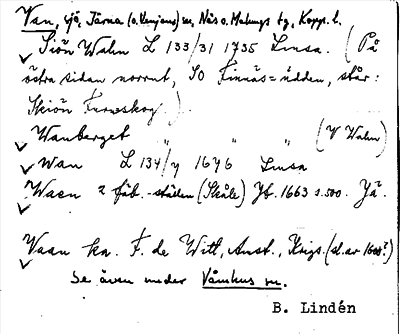 Van, sjö, Järna (o. Venjans) sn, Nås o. Malungs tg, Kopp. l.
Siön Wahn L 133/31 1735 Limsa. (På
östra sidan norrut, SO Finnäs=udden, står:
Skiön Furuskog.)
Wanberget " " " (V Wahn)
Wan L 134/y 1646 Limsa
Waen 2 fäb.-ställen (Skåle) Jb. 1663 s. 500. Jä.
Vaan kn. F. de Witt, Amst., Krigs. (sl. av 1600?)
Se även under Våmhus sn.
B. Lindén